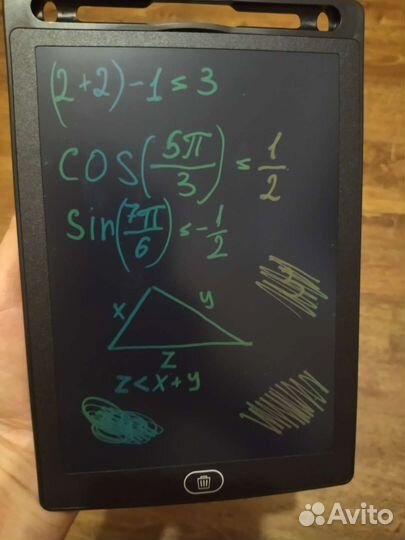 (2+2)-1≤3
cos(5π/3)≤1/2
sin(7π/6)≤-1/2
x
y
z
z<x+y
Avito